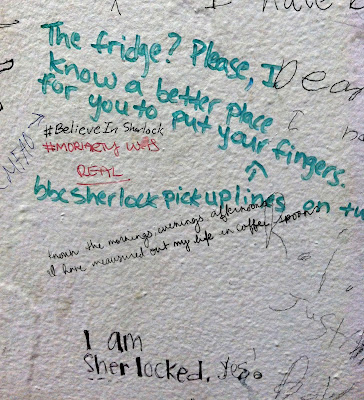 I have
The fridge? Please, I
know a better place
for you to put your fingers.
#BelieveInSherlock
#MORIARTY WAS
REAL
bbcsherlock pick up lines on tu
known the mornings, evenings, afternoons
I have measured out my life in coffee spoons
Dea
I n
Just
I am
Sherlocked. yes.